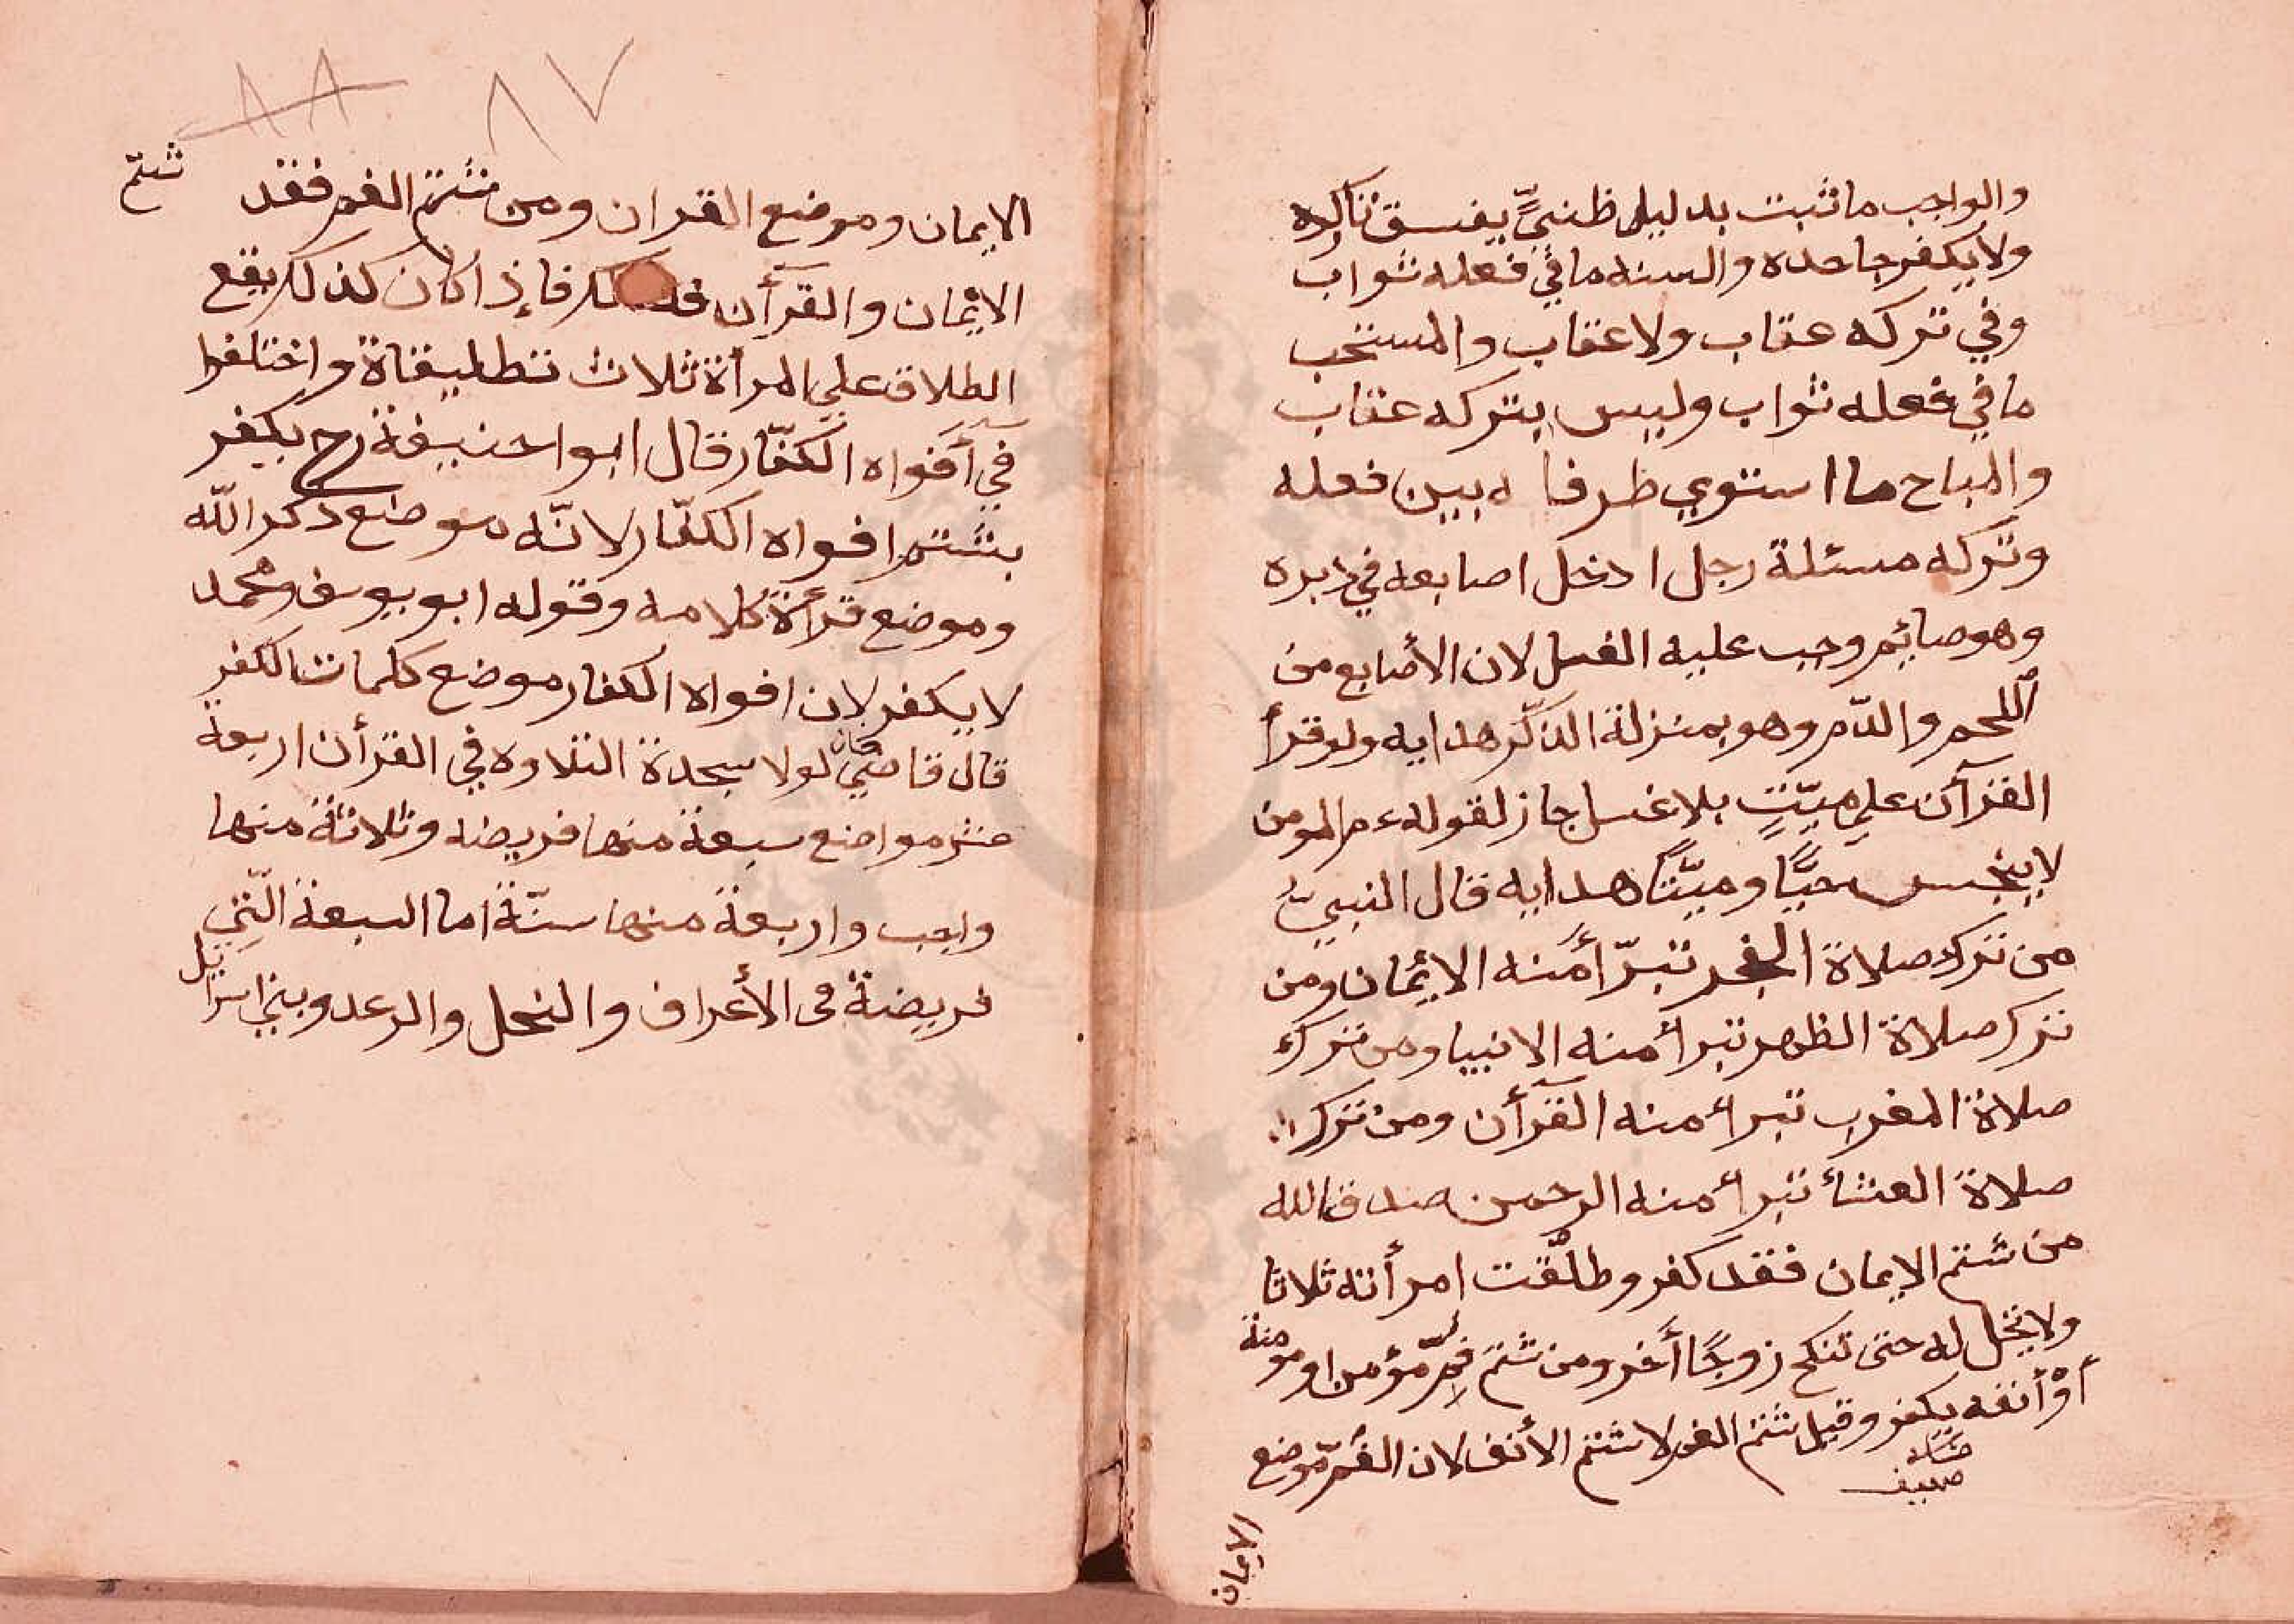 والواجب ما ثبت بدليل ظنيٍّ يفسق تاركه
ولا يكفر جاحده والسنه ما في فعله ثواب
وفي تركه عتاب ولا عقاب والمستحب
ما في فعله ثواب وليس بتركه عتاب
والمباح ما استوي طرفا ه بين فعله
وتركه مسئلة رجل ادخل اصابعه في دبره
وهو صايم وجب عليه الغسل لان الأصابع من
اللحم والدّم وهو بمنزلة الذكّر هدايه ولو قرأ
القرآن علي ميّتٍ بلا غسل جاز لقوله عم المومن
لا ينجس حيًّا وميّتًا هدايه قال النبي
من ترك صلاة الفجر تبرّأ منه الايمان ومن
ترك صلاة الظهر تبرأ منه الانبيا ومن ترك
صلاة المغرب تبرأ منه القرآن ومن ترك
صلاة العشاء تبرأ منه الرحمن صدق الله
من شتم الايمان فقد كفر وطلّقت امرأته ثلاثا
ولا تحل له حتى تنكح زوجًا أخر ومن شتم فم مؤمن او مومنة
أوْ أنفه يكفر وقيل شتم الفم لا شتم الأنف لان الفم موضع
الايمان
٨٨ ٨٧
شتم
الايمان وموضع القران ومن شتم الفم فقد
الايمان والقرآن فإذا كان كذلك يقع
الطلاق علي المرأة ثلاث تطليقاة واختلفوا
في أفواه الكفّار قال ابوا حنيفة رح يكفر
بشتم افواه الكفّار لانّه موضع ذكر اللّه
وموضع قرأة كلامه وقوله ابو يوسف ومحمد
لا يكفر لان افواه الكفار موضع كلمات الكفر
قال قاضي خان لولا سجدة التلاوه في القرأن اربعة
عشر مواضع سبعة منها فريضه وثلاثة منها
واجب واربعة منها سنّة اما السبعة الّتي
فريضة في الأعراف والنحل والرعد وبني اسرائيل